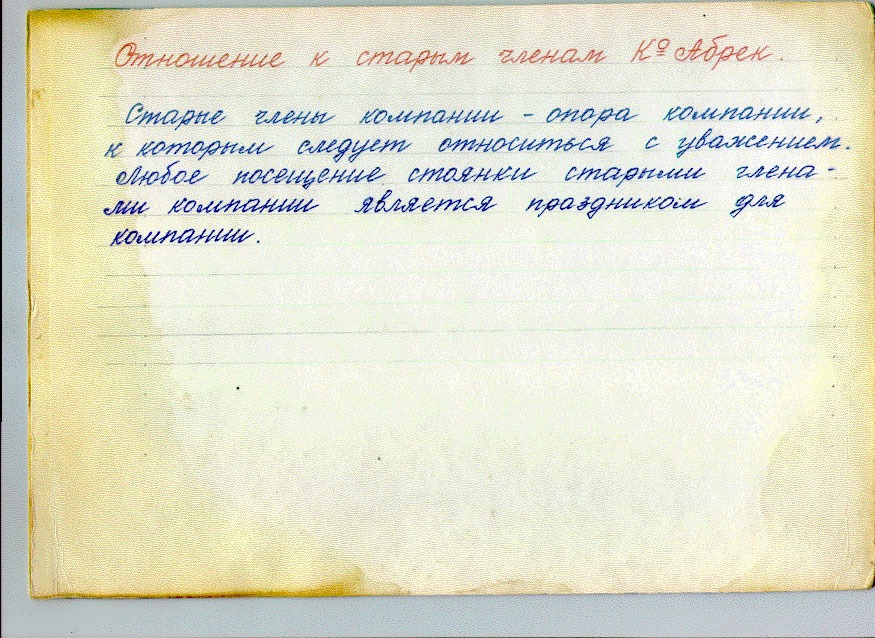 Отношение к старым членам Кº Абрек.
Старые члены компании - опора компании,
к которым следует относиться с уважением.
Любое посещение стоянки старыми члена-
ми компании является праздником для
компании.